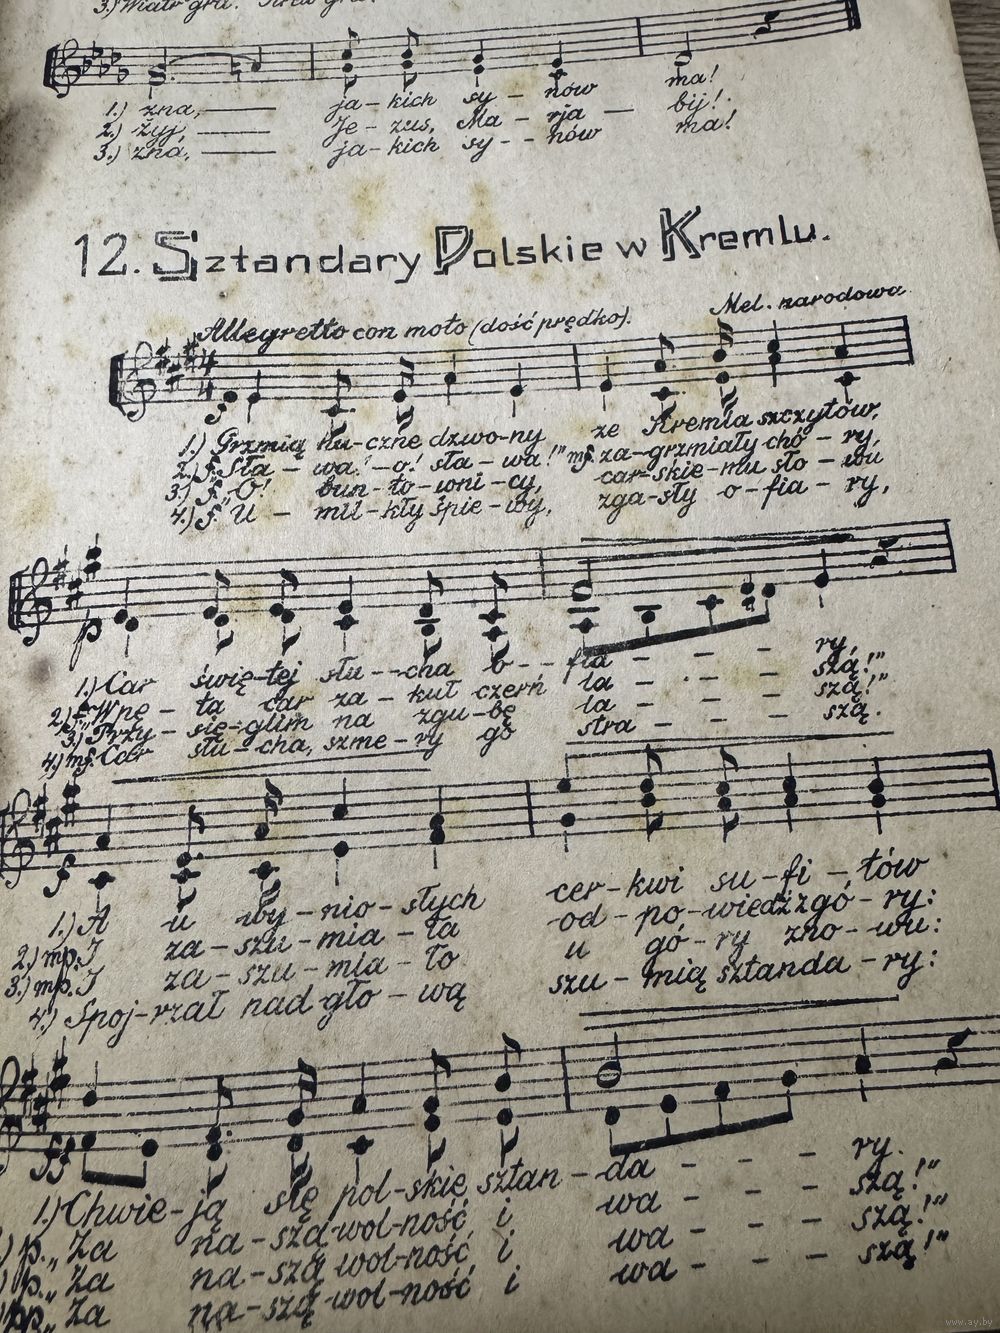 3.) Wiatr gra.
1.) zna, ja-kich sy-nów ma!
2.) żyj, Je-zus, Ma-rja- bij!
3.) zna, ja-kich sy--nów ma!
12. Sztandary Polskie w Kremlu.
Allegretto con moto (dość prędko).
Mel. narodowa
4
4
1.) Grzmią hu-czne dzwo-ny ze Kremla szczytów,
2.) f. „Sła-wa!-o! sła-wa!" mf. za-grzmiały chó-ry,
3.) f. „O! bun-to-wni-cy, car-skie-mu sło-wu
4.) f. U-mil-kły śpie-wy, zga-sły o-fia-ry,
p
1.) Car świę-tej słu--cha o--fia---ry,
2.) f. „Wnę-ta car za-kuł czerń la---szą!"
3.) „Przy-się-glim na zgu-bę la---szą!"
4.) mf. Car słu-cha, szme-ry go stra---szą.
f
1.) A u wy-nio-słych cer-kwi su-fi-tów
2.) mp. I za-szu-mia-ła od-po-wiedź z gó-ry:
3.) mp. I za-szu-mia-ło u gó-ry zno-wu:
4.) Spoj-rzał nad gło-wą szu-mią sztanda-ry:
ff
1.) Chwie-ją się pol-skie sztan-da---ry.
p. „Za na-szą wol-ność i wa---szą!"
p. „Za na-szą wol-ność i wa---szą!"
pp. „Za na-szą wol-ność i wa---szą!"
www.ay.by